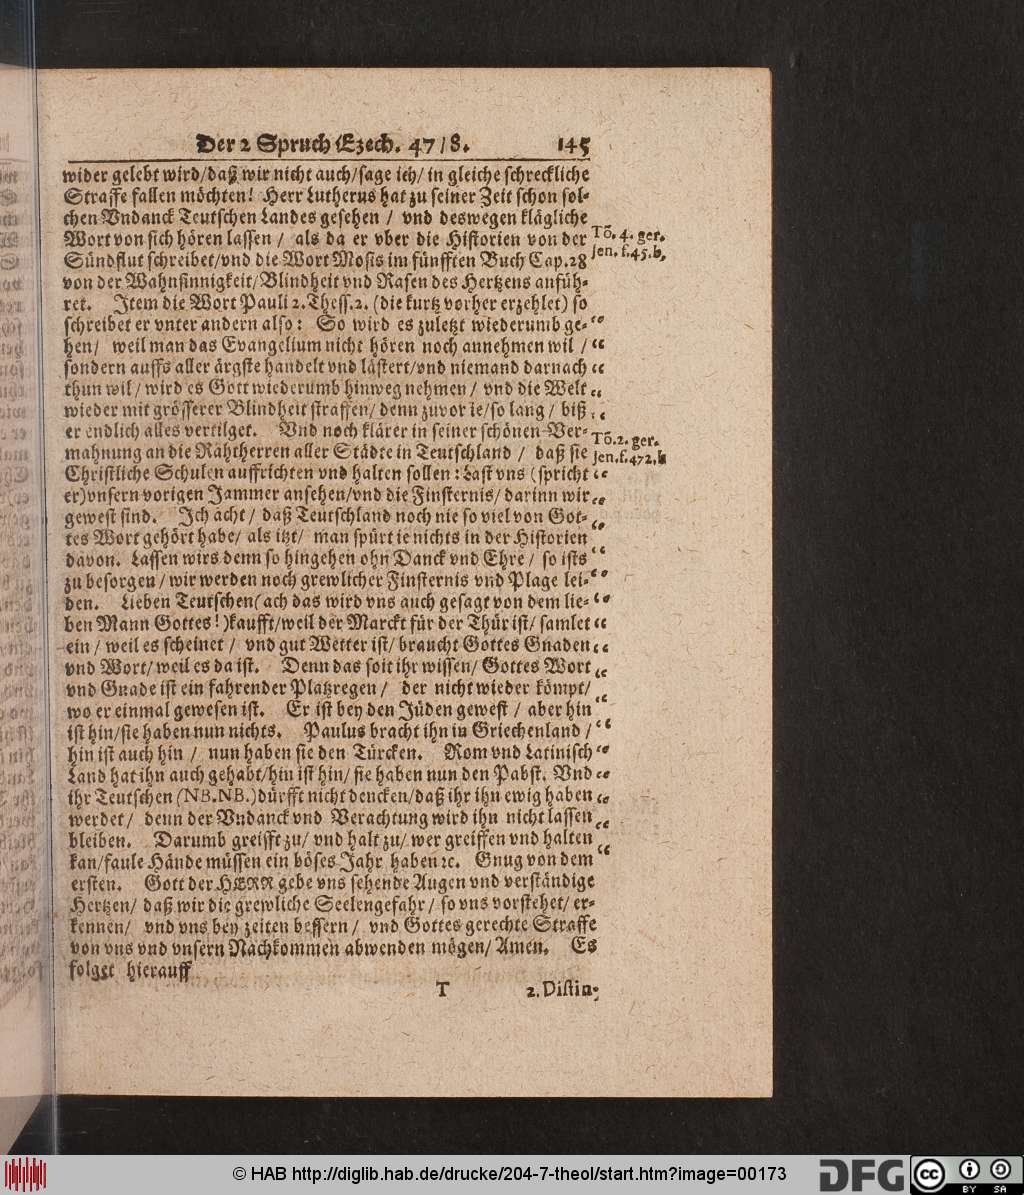 Der 2 Spruch Ezech. 47/8. 145
wider gelebt wird/daß wir nicht auch/sage ich/ in gleiche schreckliche
Straffe fallen möchten! Herr Lutherus hat zu seiner Zeit schon sol-
chen Vndanck Teutschen Landes gesehen / vnd deswegen klägliche
Wort von sich hören lassen / als da er vber die Historien von der
Tõ. 4. ger.
Sündflut schreibet/vnd die Wort Mosis im fünfften Buch Cap.28
jen. f. 45. b,
von der Wahnsinnigkeit/Blindheit vnd Rasen des Hertzens anfüh-
ret. Item die Wort Pauli 2. Thess. 2. (die kurtz vorher erzehlet) so
schreibet er vnter andern also: So wird es zuletzt wiederumb ge-
hen/ weil man das Evangelium nicht hören noch annehmen wil /
sondern auffs aller ärgste handelt vnd lästert/vnd niemand darnach
thun wil/ wird es Gott wiederumb hinweg nehmen / vnd die Welt
wieder mit grösserer Blindheit straffen/ denn zuvor ie/so lang / biß
er endlich alles vertilget. Vnd noch klärer in seiner schönen Ver-
Tõ. 2. ger.
mahnung an die Rähtherren aller Städte in Teutschland / daß sie
jen. f. 472. b
Christliche Schulen auffrichten vnd halten sollen: Last vns (spricht
er)vnsern vorigen Jammer ansehen/vnd die Finsternis/ darinn wir
gewest sind. Ich acht / daß Teutschland noch nie so viel von Got-
tes Wort gehört habe/ als itzt/ man spürt ie nichts in der Historien
davon. Lassen wirs denn so hingehen ohn Danck vnd Ehre / so ists
zu besorgen / wir werden noch grewlicher Finsternis vnd Plage lei-
den. Lieben Teutschen (ach das wird vns auch gesagt von dem lie-
ben Mann Gottes!)kaufft/weil der Marckt für der Thür ist/ samlet
ein / weil es scheinet / vnd gut Wetter ist/ braucht Gottes Gnaden
vnd Wort/ weil es da ist. Denn das solt ihr wissen/ Gottes Wort
vnd Gnade ist ein fahrender Platzregen / der nicht wieder kömpt/
wo er einmal gewesen ist. Er ist bey den Jüden gewest / aber hin
ist hin/sie haben nun nichts. Paulus bracht ihn in Griechenland /
hin ist auch hin / nun haben sie den Türcken. Rom vnd Latinisch
Land hat ihn auch gehabt/hin ist hin/ sie haben nun den Pabst. Vnd
ihr Teutschen (NB.NB.)dürfft nicht dencken/daß ihr ihn ewig haben
werdet / denn der Vndanck vnd Verachtung wird ihn nicht lassen
bleiben. Darumb greifft zu/ vnd halt zu/ wer greiffen vnd halten
kan/faule Hände müssen ein böses Jahr haben ꝛc. Gnug von dem
ersten. Gott der HERR gebe vns sehende Augen vnd verständige
Hertzen/ daß wir die grewliche Seelengefahr / so vns vorstehet/ er-
kennen/ vnd vns bey zeiten bessern / vnd Gottes gerechte Straffe
von vns vnd vnsern Nachkommen abwenden mögen/ Amen. Es
folget hierauff
T 2. Distin-
© HAB http://diglib.hab.de/drucke/204-7-theol/start.htm?image=00173
DFG cc BY SA